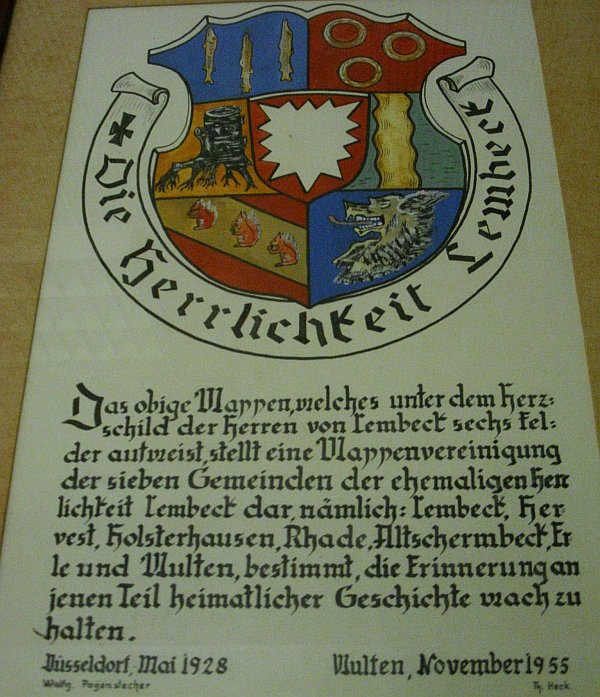 Die Herrlichkeit Lembeck
Das obige Wappen, welches unter dem Herz=
schild der Herren von Lembeck sechs Fel=
der aufweist, stellt eine Wappenvereinigung
der sieben Gemeinden der ehemaligen Herr
lichkeit Lembeck dar, nämlich: Lembeck, Her
vest, Holsterhausen, Rhade, Altschermbeck, Er
le und Wulfen, bestimmt, die Erinnerung an
jenen Teil heimatlicher Geschichte wach zu
halten.
Düsseldorf, Mai 1928
Wolfg. Pagenstecher
Wulfen, November 1955
Th. Heck